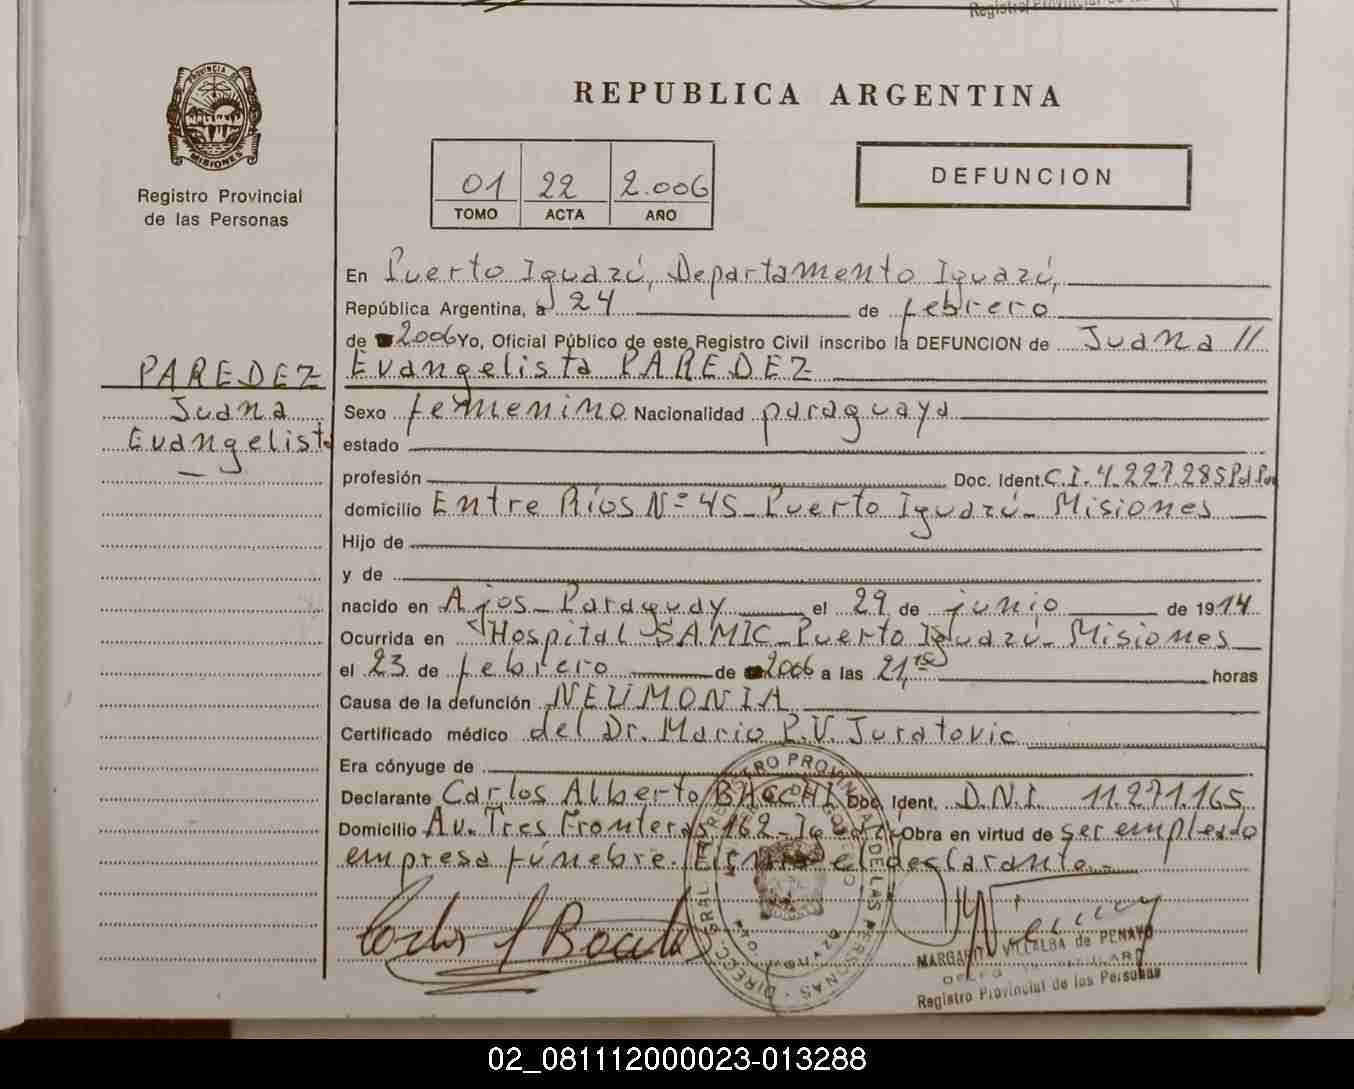 PROVINCIA DE
MISIONES
Registro Provincial
de las Personas
REPUBLICA ARGENTINA
01 22 2.006
TOMO ACTA AÑO
DEFUNCION
En Puerto Iguazú, Departamento Iguazú,
República Argentina, a 24 de febrero
de 2006 Yo, Oficial Público de este Registro Civil inscribo la DEFUNCION de Juana //
Evangelista PAREDEZ
PAREDEZ
Juana
Evangelista
Sexo femenino Nacionalidad paraguaya
estado
profesión Doc. Ident. C.I. 4.227.285
domicilio Entre Ríos Nº 45_ Puerto Iguazú_ Misiones
Hijo de
y de
nacido en Ajos_ Paraguay el 29 de junio de 1914
Ocurrida en Hospital SAMIC_ Puerto Iguazú_ Misiones
el 23 de febrero de 2006 a las 21, horas
Causa de la defunción NEUMONIA
Certificado médico del Dr. Mario P.V. Juratovic
Era cónyuge de
Declarante Carlos Alberto BACCHI Doc. Ident. D.N.I. 11.271.165
Domicilio Av. Tres Fronteras 162_ Obra en virtud de ser empleado
empresa fúnebre. Firma el declarante._
VILLALBA de PENAYO
Registro Provincial de las Personas
02_081112000023-013288